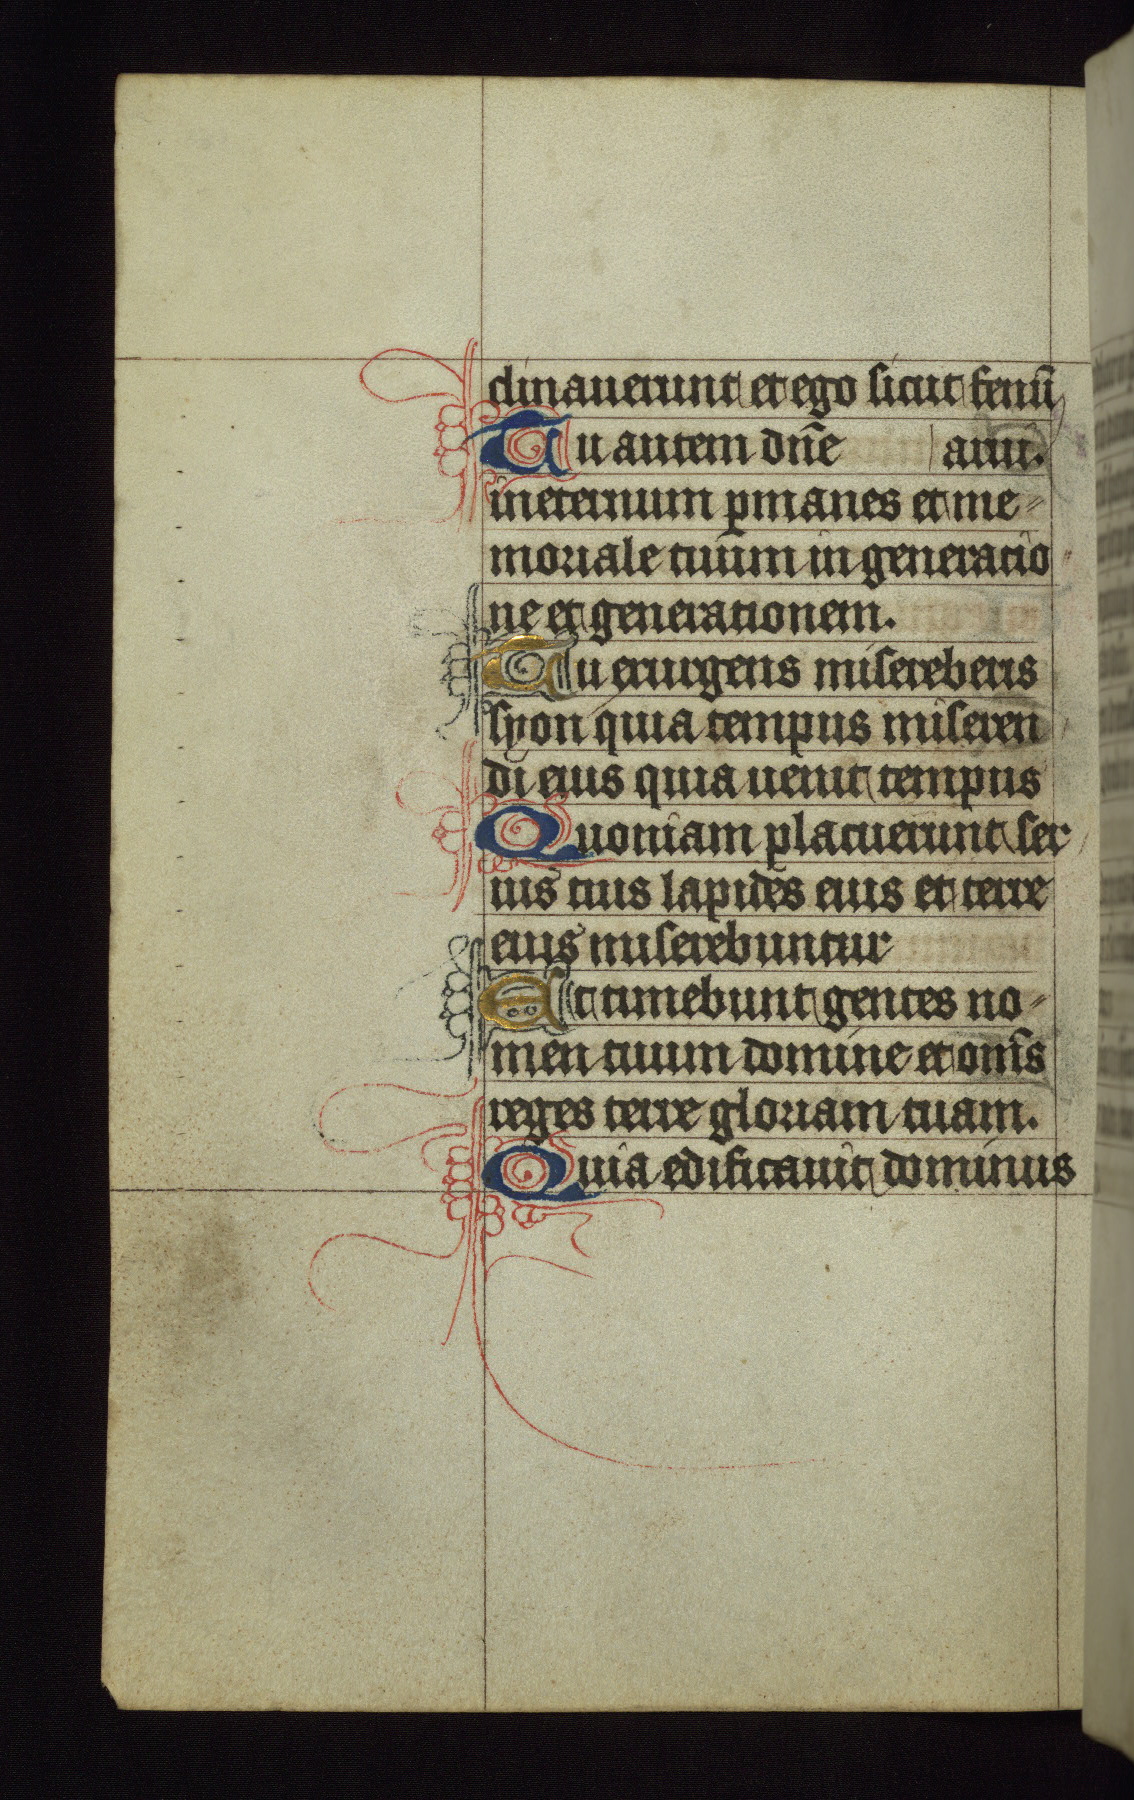 clinauerunt et ego sicut fenū
Tu autem dn̄e arui.
in eternum ꝑmanes et me-
moriale tuum in generatio
ne et generationem.
Tu exurgens misereberis
syon quia tempus miseren
di eius quia uenit tempus
Quoniam placuerunt ser
uis tuis lapides eius et terre
eius miserebuntur
Et timebunt gentes no-
men tuum domine et om̄s
reges terre gloriam tuam.
Quia edificauit dominus